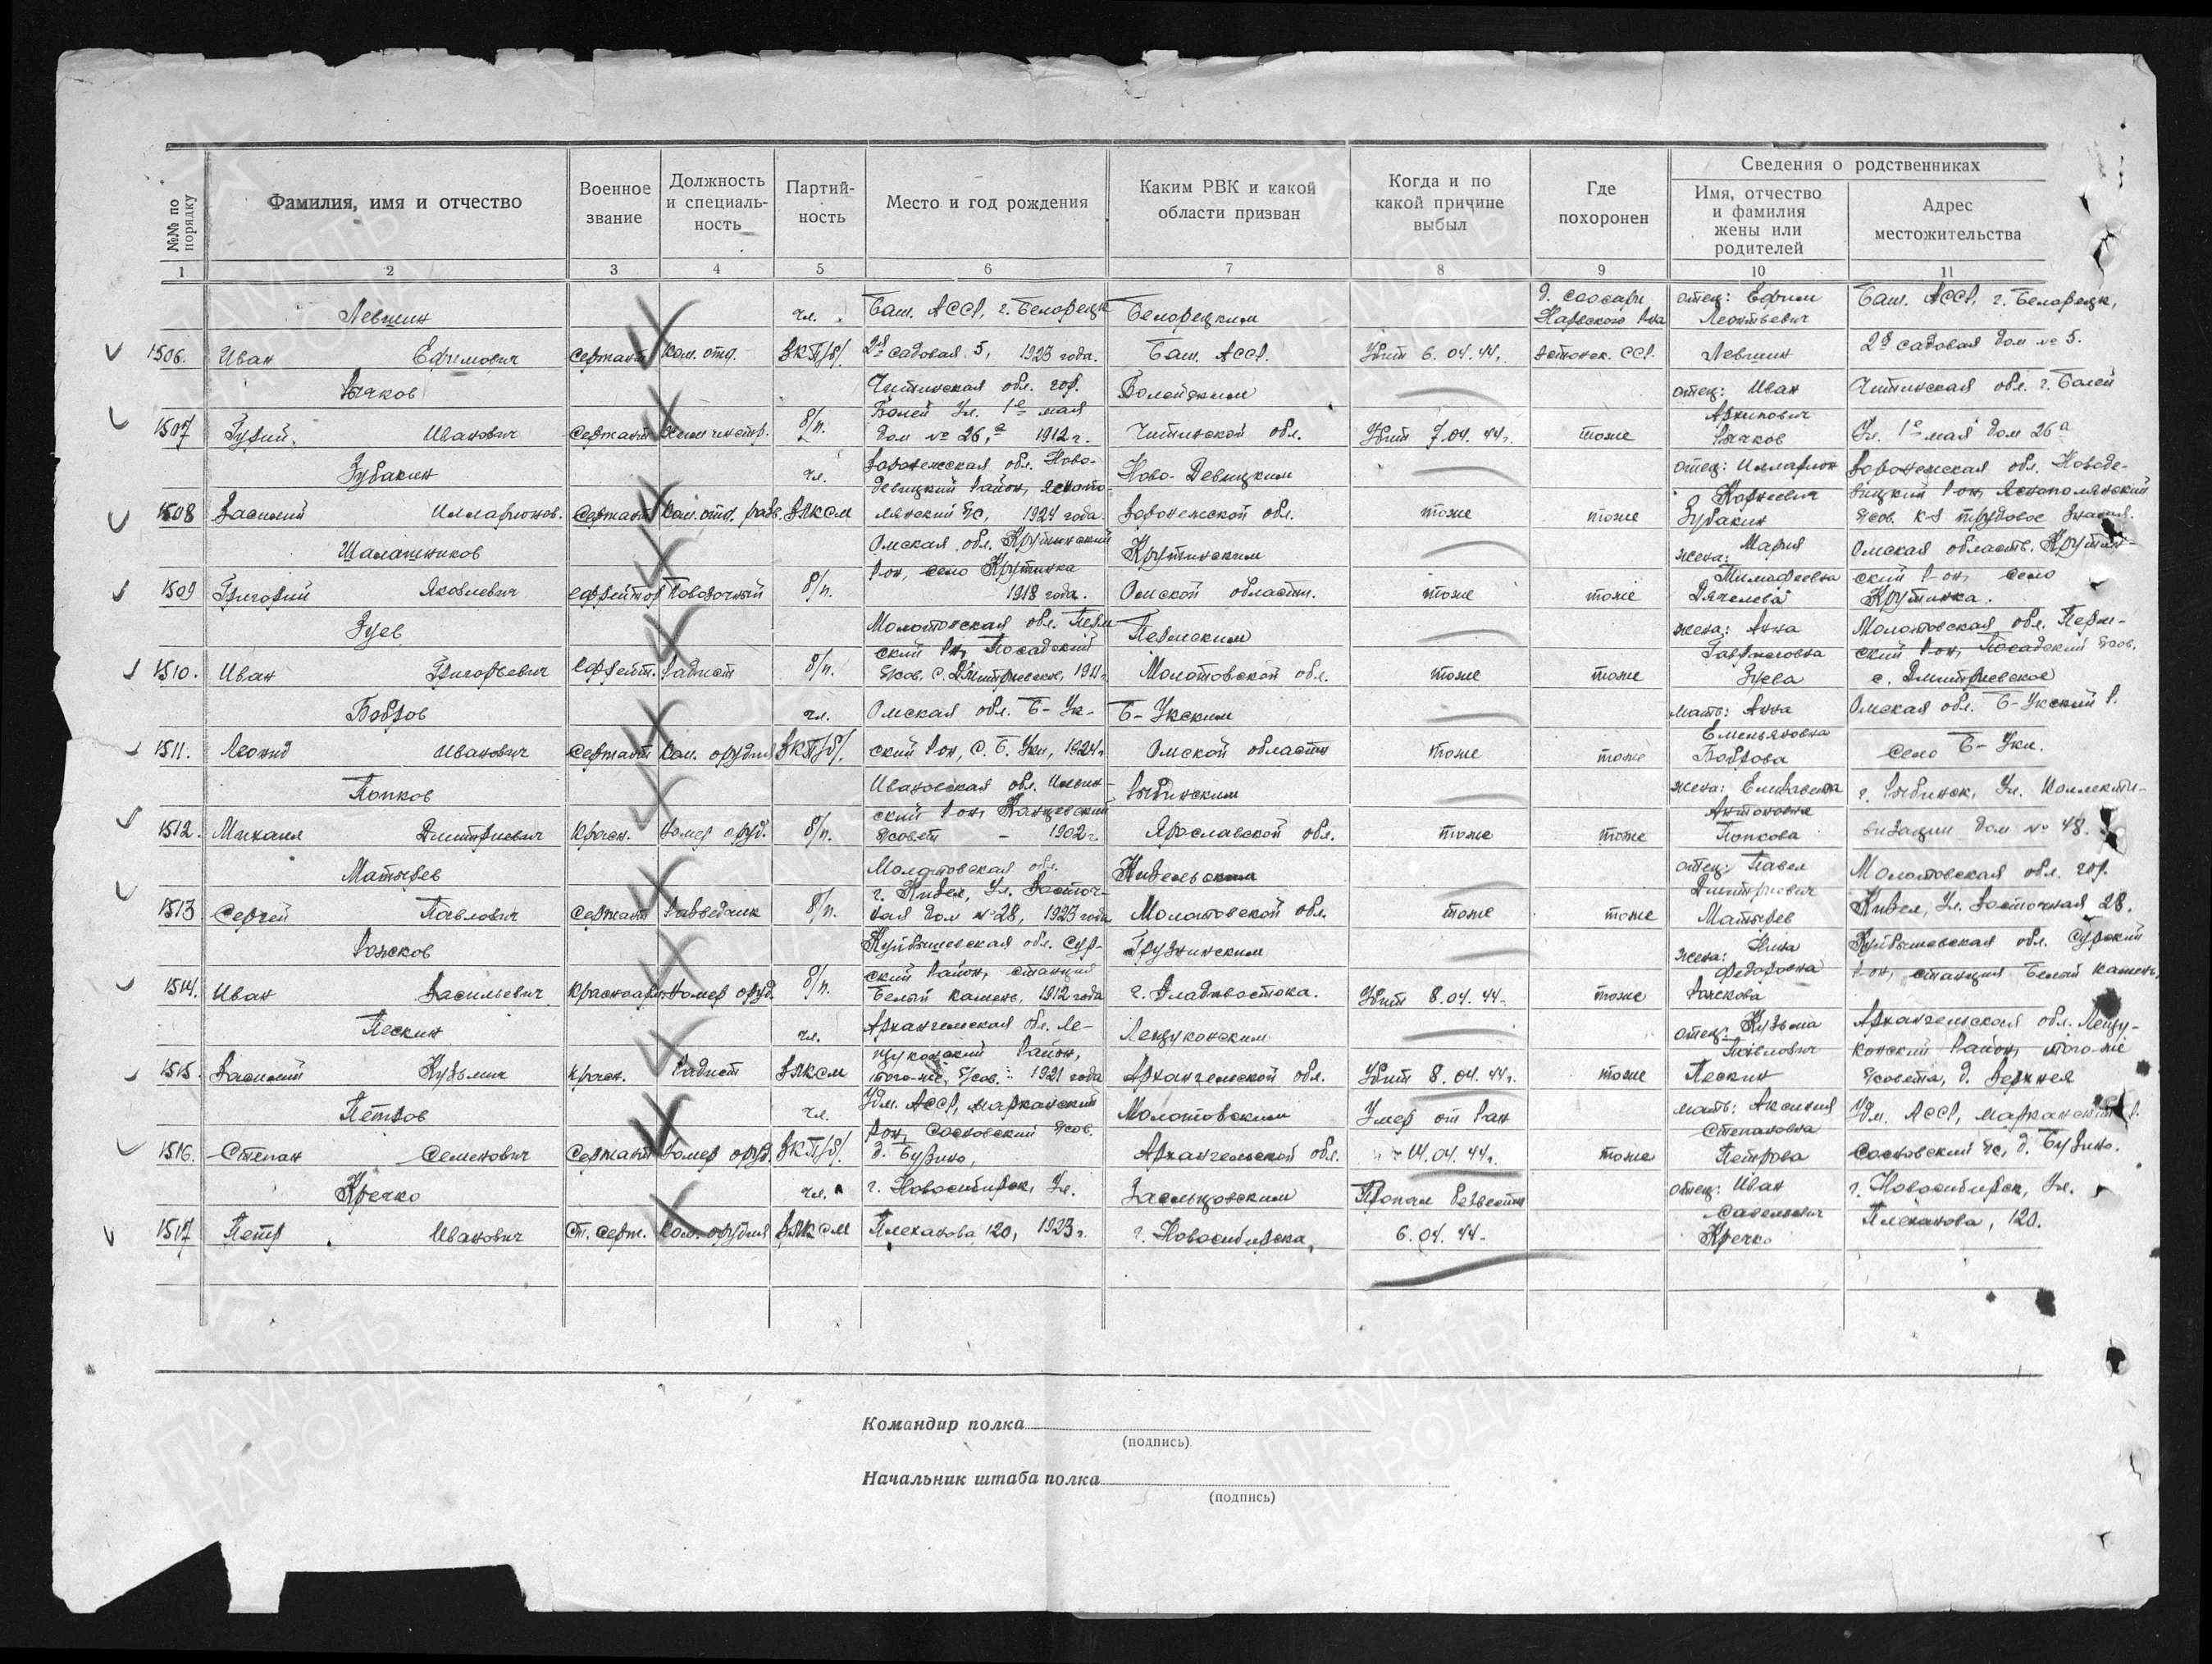 №№ по порядку
Фамилия, имя и отчество
Военное звание
Должность и специаль-ность
Партий-ность
Место и год рождения
Каким РВК и какой области призван
Когда и по какой причине выбыл
Где похоронен
Сведения о родственниках
Имя, отчество и фамилия жены или родителей
Адрес местожительства
1 2 3 4 5 6 7 8 9 10 11
Левшин чл. Баш. АССР, г. Белорецк Белорецким отец: Ефим Баш. АССР, г. Белорецк,
Нарвского р-на Леонтьевич
1506. Иван Ефимович сержант ком. отд. ВКП/б/. 2я садовая 5, 1923 года. Баш. АССР. Убит 6.04.44г. Эстонск. ССР. Левшин 2я садовая дом № 5.
Рычков Читинская обл. гор. Балейским отец: Иван Читинская обл. г. Балей
Балей Ул. 1е мая Архипович
1507 Гурий Иванович сержант б/п. дом № 26,а 1912 г. Читинской обл. Убит 7.04.44г. тоже Рычков Ул. 1е мая дом 26а
Зубакин чл. Воронежская обл. Ново- Ново-Девицким отец: Илларион Воронежская обл. Новоде-
девицкий район, яснопо- Корнеевич вицкий р-он, Яснополянский
1508 Василий Илларионов. Сержант Ком. отд. разв. ВЛКСМ лянский с/с, 1924 года. Воронежской обл. тоже тоже Зубакин
Шалашников Омская обл. Крутинский Крутинским жена: Мария Омская область, Крутин-
р-он, село Крутинка Тимофеевна ский р-он, село
1509 Григорий Яковлевич ефрейтор Повозочный б/п. 1918 года. Омской области. тоже тоже Крутинка.
Зуев Молотовская обл. Перм- Пермским жена: Анна Молотовская обл. Перм-
ский р-н, Посадский Гавриловна ский р-он, Посадский с/сов.
1510. Иван Григорьевич ефрейт. Радист б/п. с/сов. с. Дмитриевское, 1911г. Молотовской обл. тоже тоже Зуева с. Дмитриевское
Бобров чл. Омская обл. Б-Ук- Б-Укским мать: Анна Омская обл. Б-Укский р.
Емельяновна
1511. Леонид Иванович сержант ком. орудия ВКП/б/. ский р-он, с. Б. Уки, 1924г. Омской области тоже тоже Боброва село Б-Уки.
Попков Ивановская обл. Ильин- Рыбинским жена: Елизавета г. Рыбинск, Ул. Коллекти-
ский р-он, Антоновна
1512. Михаил Дмитриевич Красн. Номер оруд. б/п. с/совет - 1902г. Ярославской обл. тоже тоже Попкова визации дом № 48.
Матырев Молотовская обл. Кизельским отец: Павел Молотовская обл. гор.
г. Кизел, Ул. Восточ- Дмитриевич
1513 Сергей Павлович сержант Разведчик б/п. ная дом № 28, 1923 года Молотовской обл. тоже тоже Матырев Кизел, Ул. Восточная 28.
Рожков Куйбышевская обл. Сур- Фрунзенским жена: Нина Куйбышевская обл. Сурский
ский район, станция Федоровна р-он, станция Белый камень,
1514. Иван Васильевич Красноарм. Номер оруд. б/п. Белый камень, 1912 года г. Владивостока. Убит 8.04.44г. тоже Рожкова
Пескин чл. Архангельская обл. Ле- Лешуконским отец: Кузьма Архангельская обл. Лешу-
шуконский район, Павлович конский район, того-же
1515. Василий Кузьмич Красн. Радист ВЛКСМ того-же, с/сов. 1921 года Архангельской обл. Убит 8.04.44г. тоже Пескин с/совета, д. Верхняя
Петров чл. Удм. АССР, Молотовским Умер от ран мать: Аксиния Удм. АССР,
р-он, Сосновский с/сов. Степановна
1516. Степан Семенович Сержант Номер оруд. ВКП/б/. Архангельской обл. 14.04.44г. тоже Петрова Сосновский с/с, д.
Кречко чл. г. Новосибирск, Ул. Заельцовским Пропал безвести отец: Иван г. Новосибирск, Ул.
Савельевич
1517 Петр Иванович Ст. серж. Ком. орудия ВЛКСМ Плеханова 120, 1923г. г. Новосибирска, 6.04.44г. Кречко Плеханова, 120.
Командир полка
(подпись)
Начальник штаба полка
(подпись)
ПАМЯТЬ НАРОДА